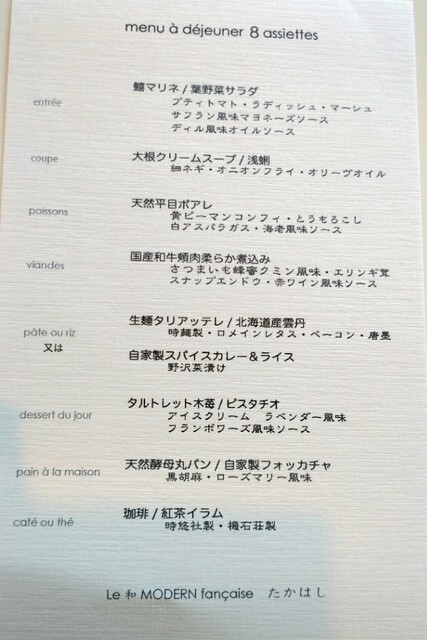 menu à déjeuner 8 assiettes
entrée
鱚マリネ / 葉野菜サラダ
プティトマト・ラディッシュ・マーシュ
サフラン風味マヨネーズソース
ディル風味オイルソース
coupe
大根クリームスープ / 浅蜊
細ネギ・オニオンフライ・オリーヴオイル
poissons
天然平目ポアレ
黄ピーマンコンフィ・とうもろこし
白アスパラガス・海老風味ソース
viandes
国産和牛頬肉柔らか煮込み
さつまいも蜂蜜クミン風味・エリンギ茸
スナップエンドウ・赤ワイン風味ソース
pâte ou riz
又は
生麺タリアッテレ / 北海道産雲丹
時麺製・ロメインレタス・ベーコン・唐墨
自家製スパイスカレー＆ライス
野沢菜漬け
dessert du jour
タルトレット木苺 / ピスタチオ
アイスクリーム ラベンダー風味
フランボワーズ風味ソース
pain à la maison
天然酵母丸パン / 自家製フォッカチャ
黒胡麻・ローズマリー風味
café ou thé
珈琲 / 紅茶イラム
時悠社製・機石荘製
Le 和 MODERN fançaise たかはし